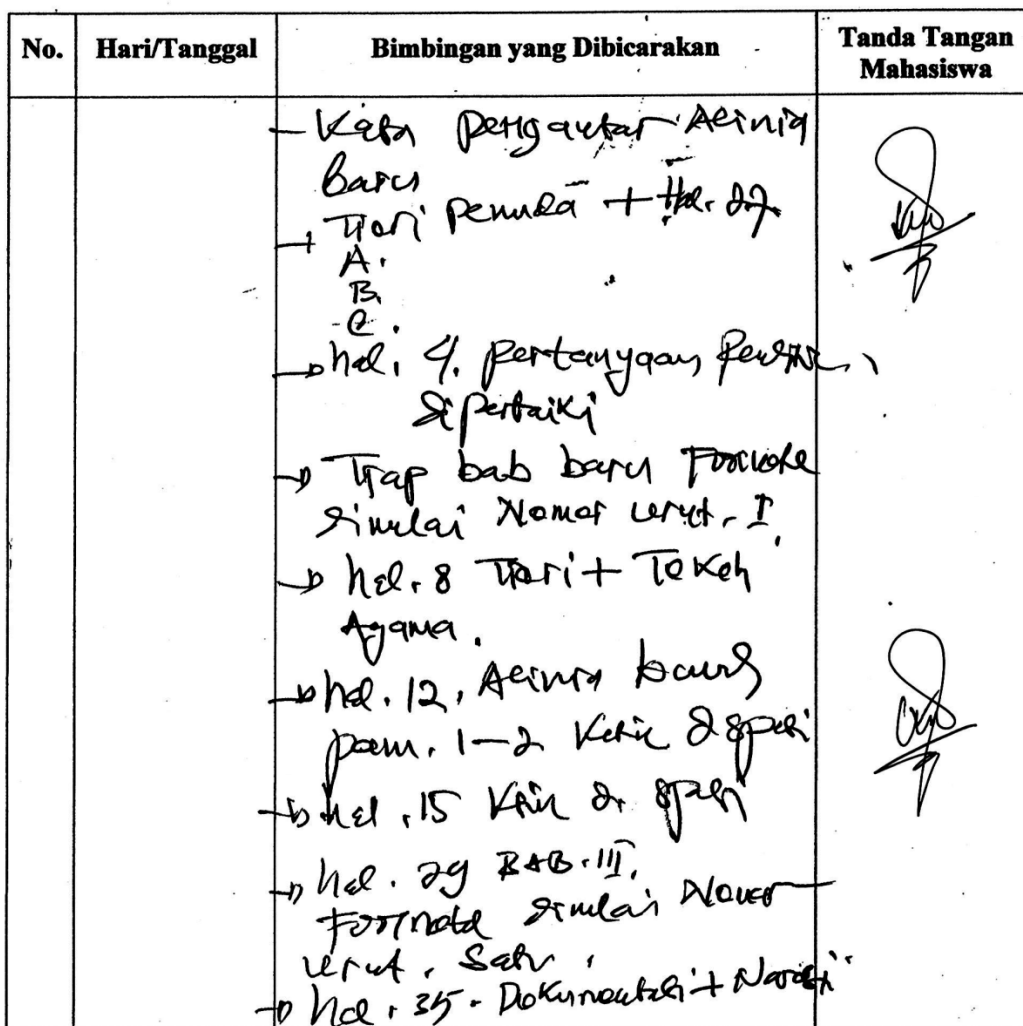 No. Hari/Tanggal Bimbingan yang Dibicarakan Tanda Tangan Mahasiswa
- Kata Pengantar Alinia
baru
→ Teori Pemuda + Hal. 27
A.
B.
C.
→ hal. 4. pertanyaan
diperbaiki
→ Tiap bab baru Footnote
dimulai Nomor urut. I.
→ hal. 8 Teori + Tokoh
Agama.
→ hal. 12, Alinia baru
1-2 Ketik 2 spasi
→ hal. 15 Ketik 2 spasi
→ hal. 29 BAB. III.
Footnote dimulai Nomor
urut. Satu.
→ hal. 35. Dokumentasi + Narasi